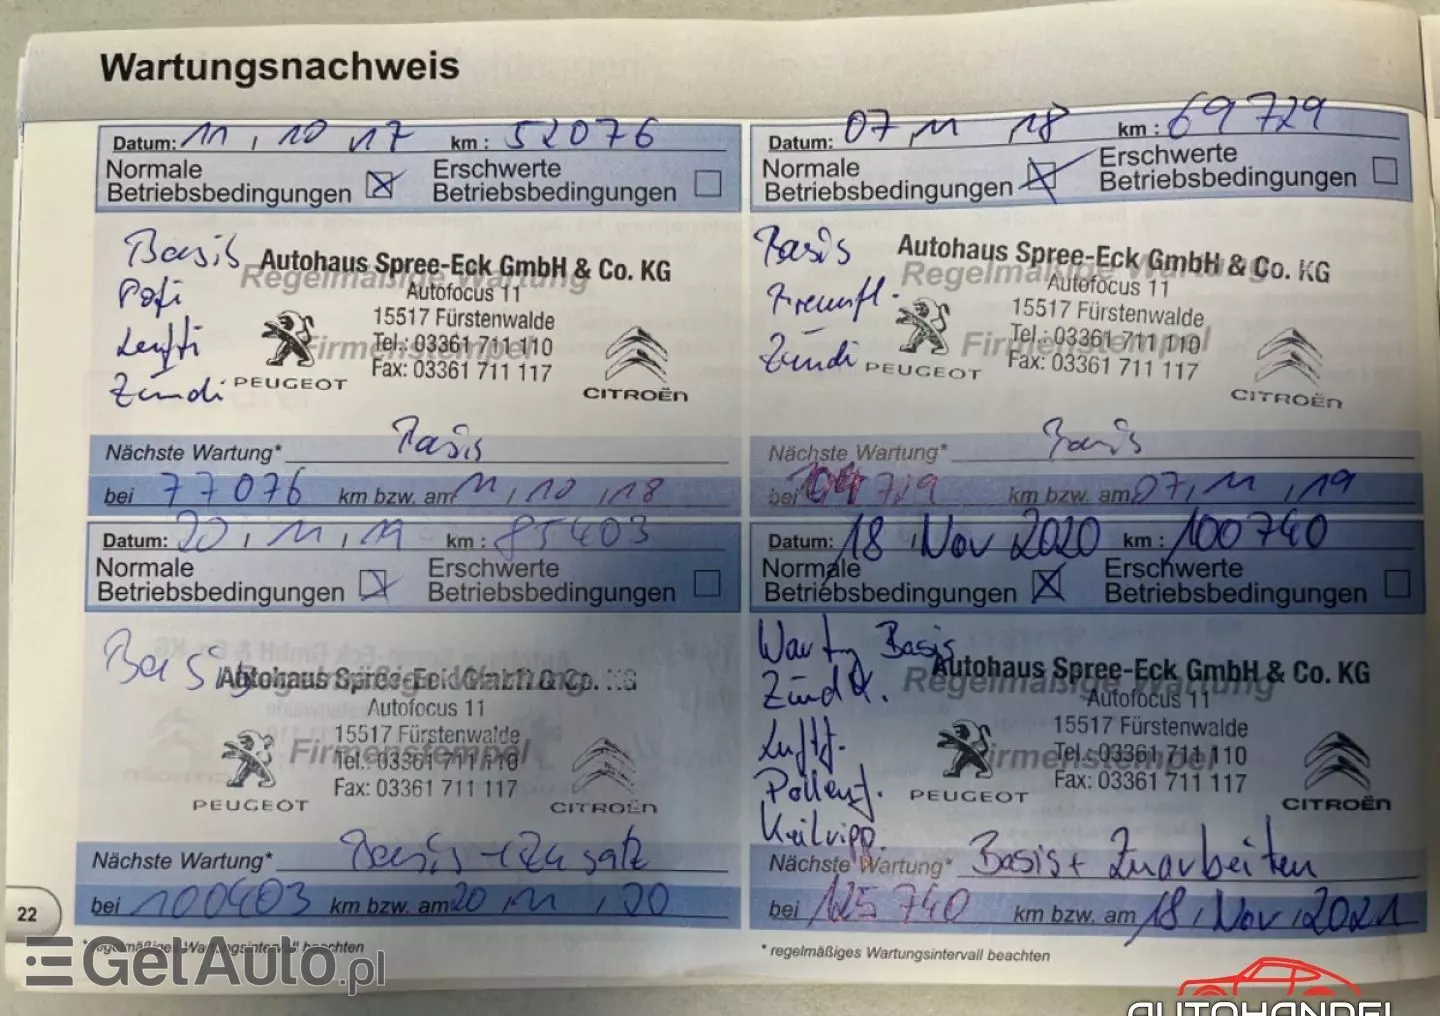 Wartungsnachweis
Datum: 11, 10, 17 km: 52076
Normale Betriebsbedingungen
Erschwerte Betriebsbedingungen
Basis
Regelmäßige Wartung
Autohaus Spree-Eck GmbH & Co. KG
Autofocus 11
Polli
15517 Fürstenwalde
Lufti
Firmenstempel
Tel.: 03361 711 110
Fax: 03361 711 117
Zündi
PEUGEOT
CITROËN
Nächste Wartung* Basis
bei 77076 km bzw. am 11, 10, 18
Datum: 07, 11, 18 km: 69729
Normale Betriebsbedingungen
Erschwerte Betriebsbedingungen
Basis
Regelmäßige Wartung
Autohaus Spree-Eck GmbH & Co. KG
Autofocus 11
15517 Fürstenwalde
Firmenstempel
Tel.: 03361 711 110
Fax: 03361 711 117
Zündi
PEUGEOT
CITROËN
Nächste Wartung* Basis
bei km bzw. am 07, 11, 19
Datum: 20, 11, 19 km: 85403
Normale Betriebsbedingungen
Erschwerte Betriebsbedingungen
Basis
Regelmäßige Wartung
Autohaus Spree-Eck GmbH & Co. KG
Autofocus 11
15517 Fürstenwalde
Firmenstempel
Tel.: 03361 711 110
Fax: 03361 711 117
PEUGEOT
CITROËN
Nächste Wartung* Basis + Zusatz
bei 100403 km bzw. am 20, 11, 20
* regelmäßiges Wartungsintervall beachten
Datum: 18, Nov, 2020 km: 100740
Normale Betriebsbedingungen
Erschwerte Betriebsbedingungen
Wartung Basis
Regelmäßige Wartung
Autohaus Spree-Eck GmbH & Co. KG
Zündk.
Autofocus 11
15517 Fürstenwalde
Luftf.
Firmenstempel
Tel.: 03361 711 110
Pollenf.
Fax: 03361 711 117
Keilripp.
PEUGEOT
CITROËN
Nächste Wartung* Basis + Zusarbeiten
bei 125740 km bzw. am 18, Nov, 2021
* regelmäßiges Wartungsintervall beachten
22
GetAuto.pl
AUTOHANDEL